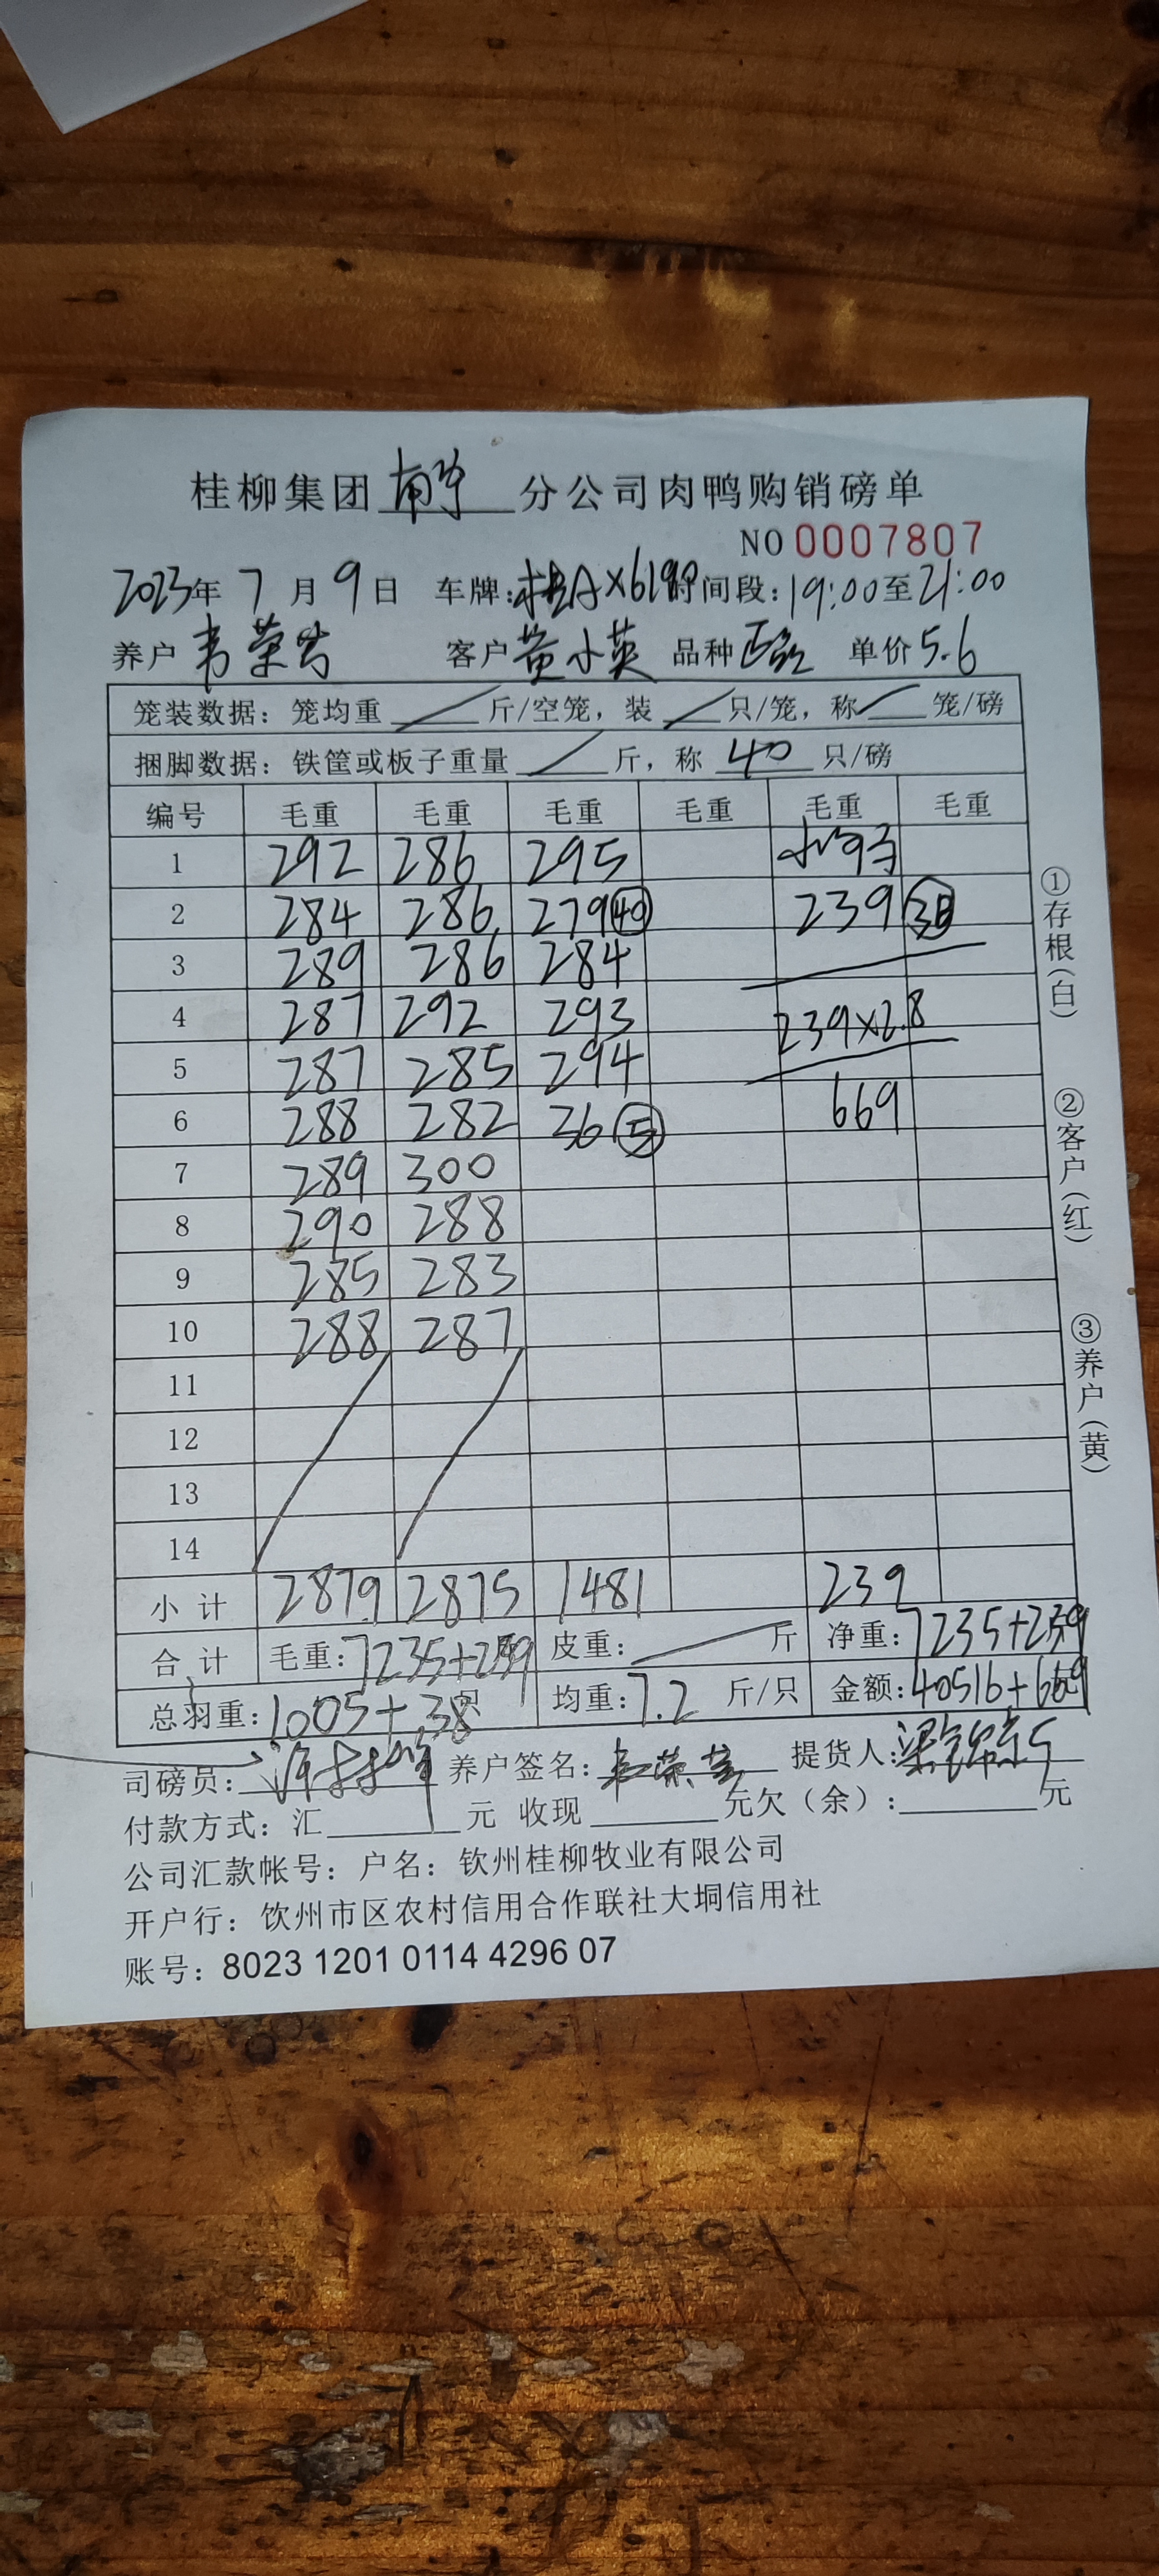 桂柳集团 南宁 分公司肉鸭购销磅单
NO 0007807
2023年 7 月 9 日 车牌:桂AX6190 时间段:19:00至21:00
养户 韦荣 客户 黄小英 品种 单价 5.6
笼装数据: 笼均重 斤/空笼, 装 只/笼, 称 笼/磅
捆脚数据: 铁筐或板子重量 斤, 称 40 只/磅
编号 毛重 毛重 毛重 毛重 毛重 毛重
1 292 286 295
2 284 286 279 40 239 38
3 289 286 284
4 287 292 293 239×2.8
5 287 285 294
6 288 282 36 5 669
7 289 300
8 290 288
9 285 283
10 288 287
11
12
13
14
小计 2879 2875 1481 239
合计 毛重:7235+239 皮重: 斤 净重:7235+239
总羽重:1005+38只 均重:7.2 斤/只 金额:40516+669
司磅员: 养户签名: 提货人:
付款方式: 汇 元 收现 元欠(余): 元
公司汇款帐号: 户名: 钦州桂柳牧业有限公司
开户行: 饮州市区农村信用合作联社大垌信用社
账号: 8023 1201 0114 4296 07
①存根(白)
②客户(红)
③养户(黄)